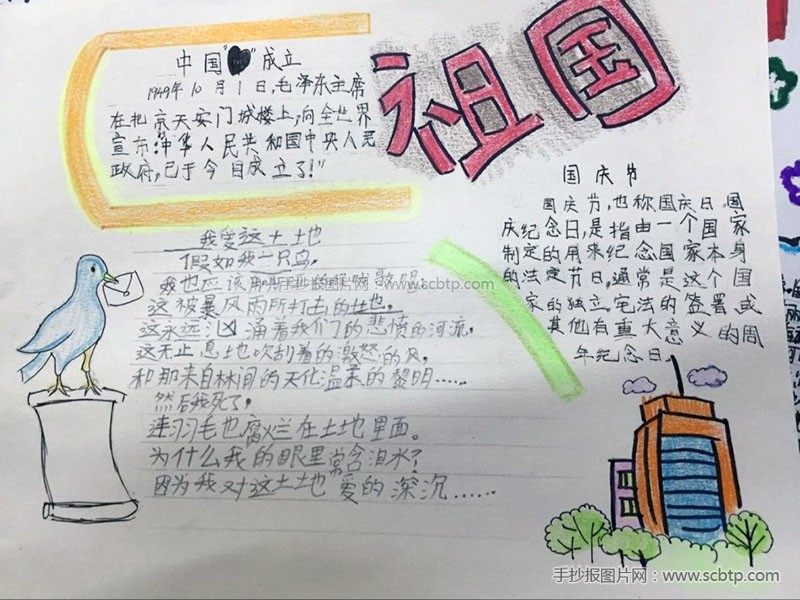 祖国
中国“”成立
1949年10月1日,毛泽东主席
在北京天安门城楼上,向全世界
宣布:“中华人民共和国中央人民
政府,已于今日成立了!”
国庆节
国庆节,也称国庆日、国
庆纪念日,是指由一个国家
制定的用来纪念国家本身
的法定节日,通常是这个国
家的独立、宪法的签署或
其他有重大意义的周
年纪念日。
我爱这土土地
假如我一只鸟,
我也应该用
这被暴风雨所打击的土地,
这永远汹涌着我们的悲愤的河流,
这无止息地吹刮着的激怒的风,
和那来自林间的无比温柔的黎明……
然后我死了,
连羽毛也腐烂在土地里面。
为什么我的眼里常含泪水?
因为我对这土土地 爱的深沉……
手抄报图片网 www.scbtp.com
手抄报图片网：www.scbtp.com